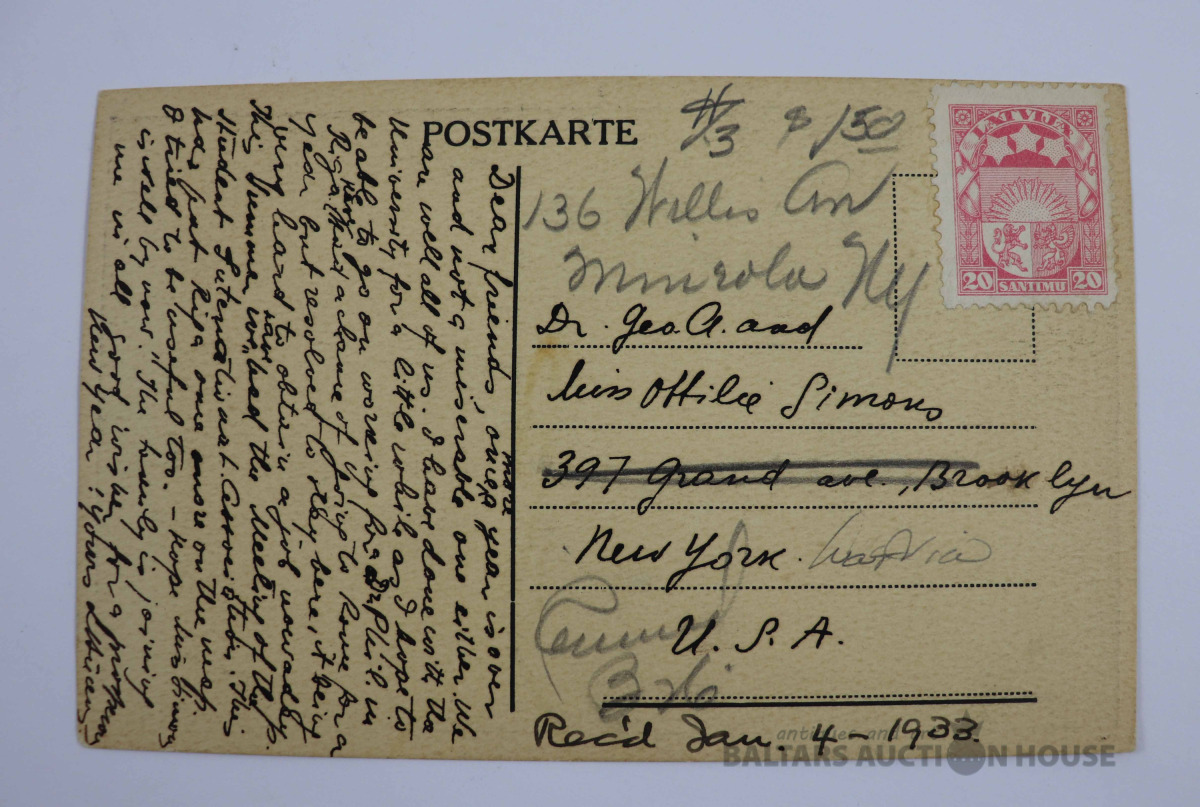 POSTKARTE
#3 $ 150
136 Willis Av
Mineola NY
LATVIJA
20 SANTIMU 20
Dr. Geo. A. and
Miss Ottilie Simons
397 Grand ave., Brooklyn
New York. Latvia
U. S. A.
Rec'd Jan. 4 - 1933.
Dear friends, one more year is over
and not a miserable one either. We
are well all of us. I have done with the
University for a little while as I hope to
be able to go on working for a Dr. Phil. in
Riga. Had a chance of going to Rome for a
year but resolved to stay here it being
very hard to obtain a job nowadays.
This Summer we had the Meeting of the
Student International Association. This
has put Riga once more on the map.
I tried to be useful too. – Hope Miss Simons
is well by now. The family is joining
me in all good wishes for a
New Year! Yours
antiques and
BALTARS AUCTION HOUSE